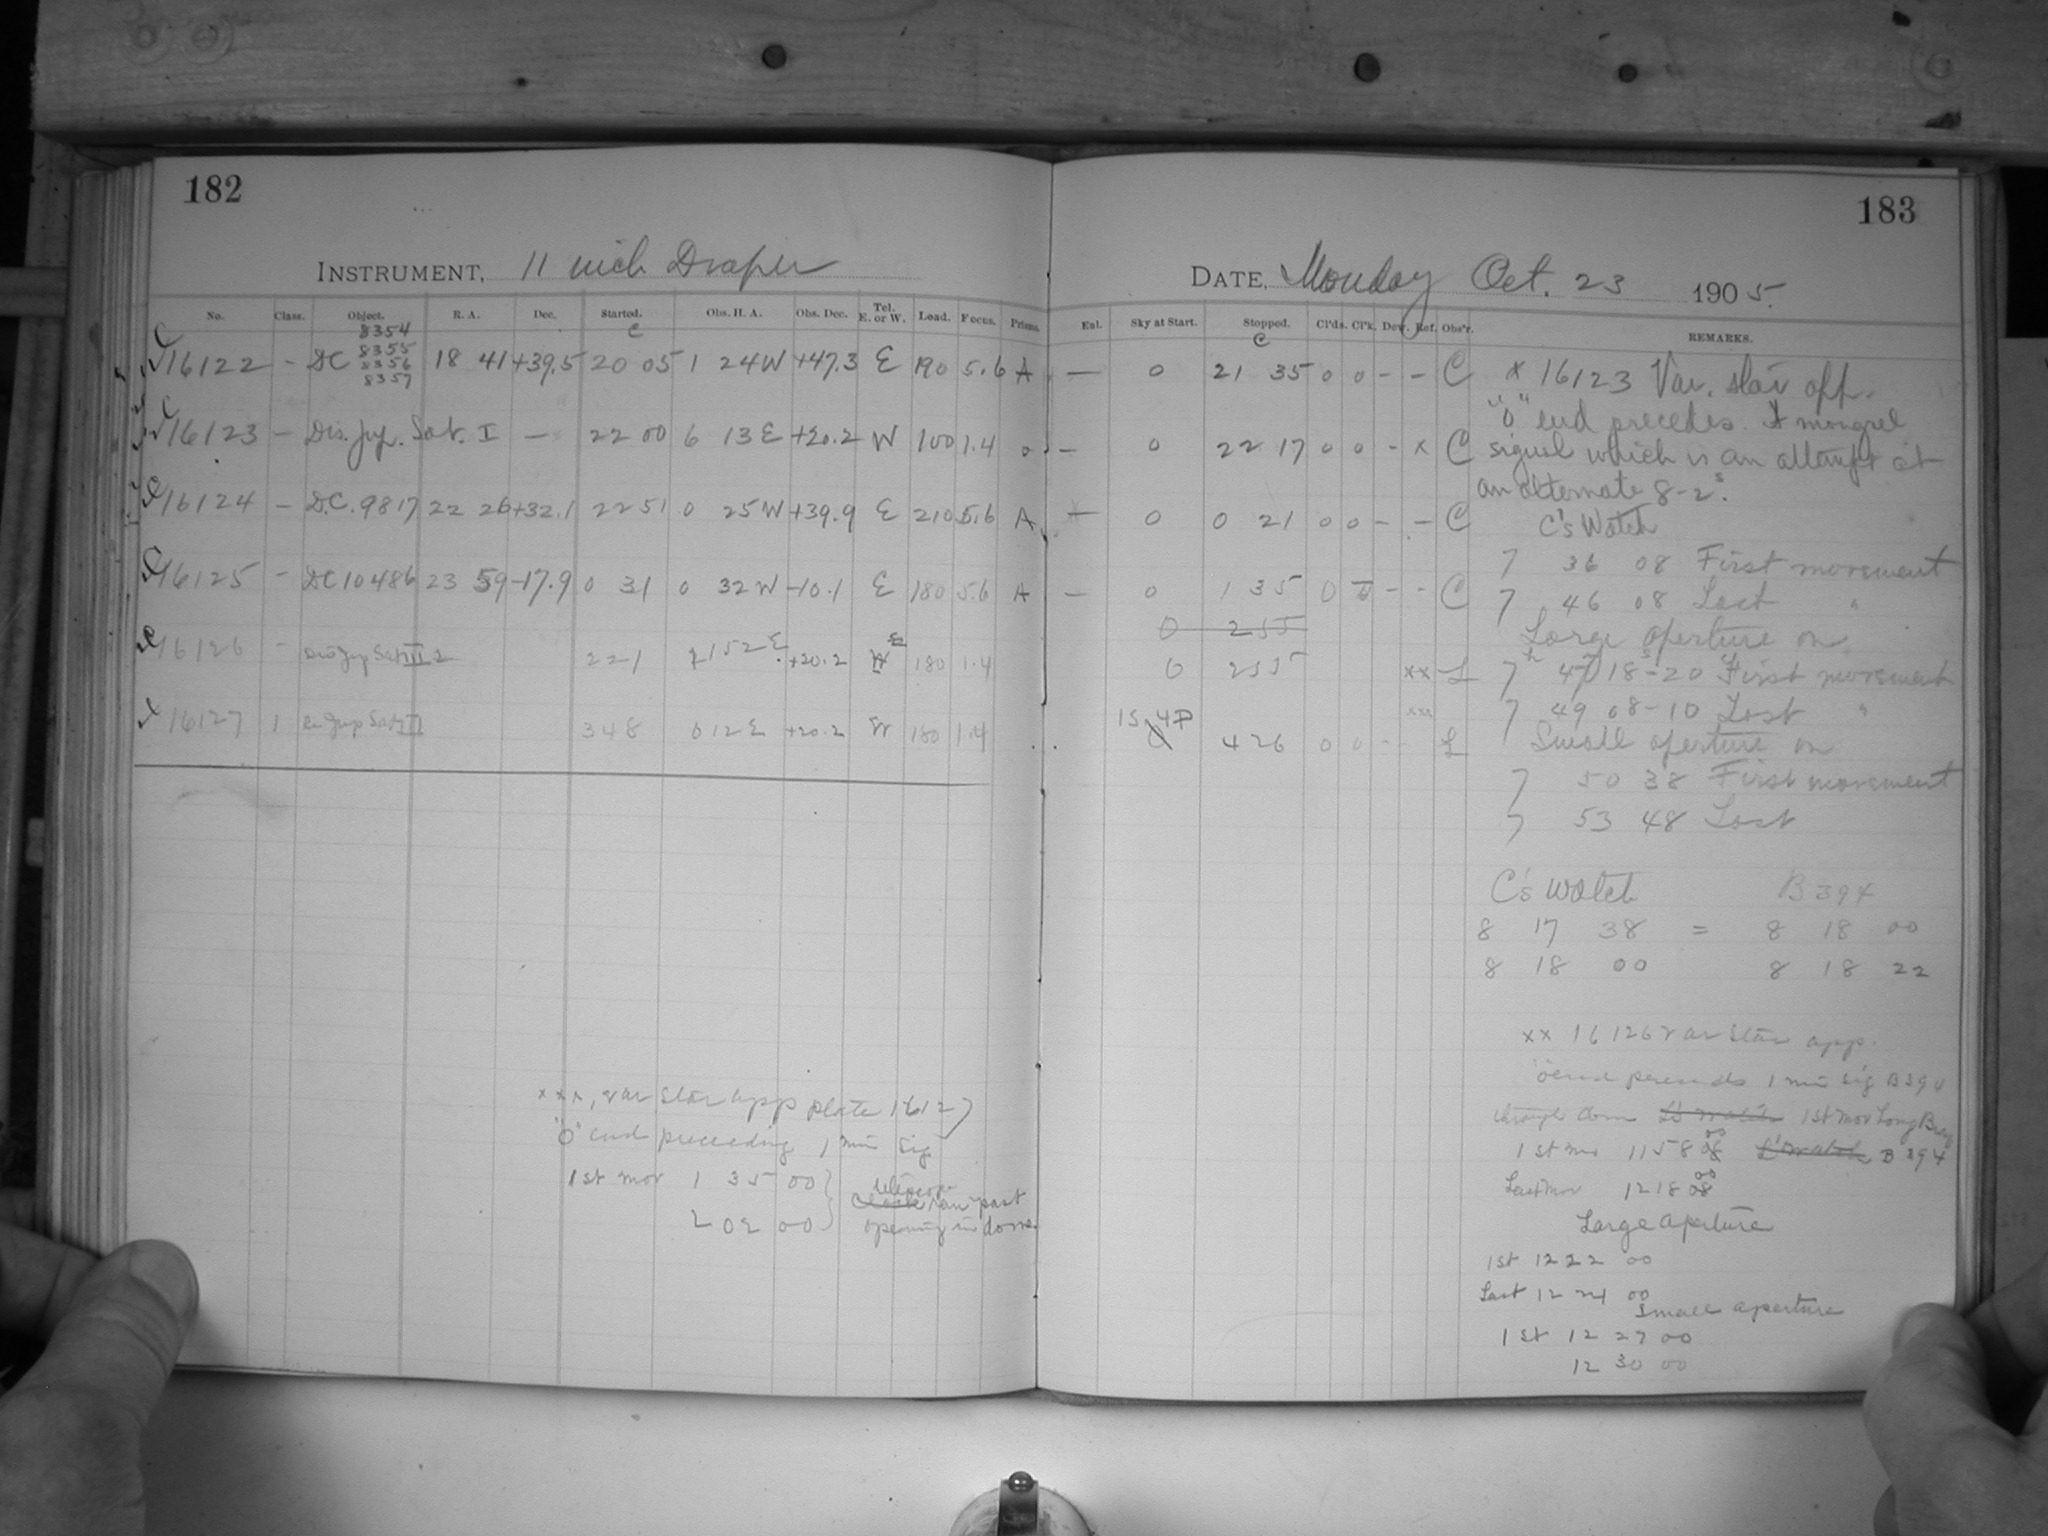 182
INSTRUMENT, 11 inch Draper
No. Class. Object. R. A. Dec. Started. Obs. H. A. Obs. Dec. Tel. E. or W. Load. Focus. Prisms.
8354
8355
16122 – DC 8356 18 41 +39.5 20 05 1 24 W +47.3 E 190 5.6 A
8357
16123 – Dis. Jup. Sat. I — 22 00 6 13 E +20.2 W 100 1.4 0
16124 – D.C. 9817 22 26 +32.1 22 51 0 25 W +39.9 E 210 5.6 A
16125 – DC 10486 23 59 -17.9 0 31 0 32 W -10.1 E 180 5.6 A
16126 – Dis Jup Sat 2 21 1 52 E +20.2 E 180 1.4
16127 1 Jup Sat II 3 48 0 12 E +20.2 W 180 1.4
xxx, var star app plate 16127
"O" end preceding 1 min sig
1st mor 1 35 00
2 02 00
telescope
ran past
opening in dome
183
DATE, Monday Oct. 23 1905.
Enl. Sky at Start. Stopped. Cl'ds. Cl'k. Dew. Ref. Obs'r. REMARKS.
— 0 21 35 0 0 – – C
— 0 22 17 0 0 – x C
— 0 0 21 0 0 – – C
— 0 1 35 0 – – C
0 2 55
0 2 55 xx L
15, 47 xxx
4 26 0 0 – – L
x 16123 Var. star app.
"O" end precedes. A mongrel
signal which is an attempt at
an alternate 8-2s.
C's Watch
7 36 08 First movement
7 46 08 Last "
Large aperture on
7h 47m 18s-20 First movement
7 49 08-10 Last "
Small aperture on
7 50 38 First movement
7 53 48 Last
C's Watch B 394
8 17 38 = 8 18 00
8 18 00 8 18 22
xx 16126 var star app.
"O" end precedes 1 min sig B 394
through dome 1st mor Long
1st mor 11 58 00 B 394
Last mor 12 18 00
Large aperture
1st 12 22 00
Last 12 24 00
Small aperture
1st 12 27 00
12 30 00